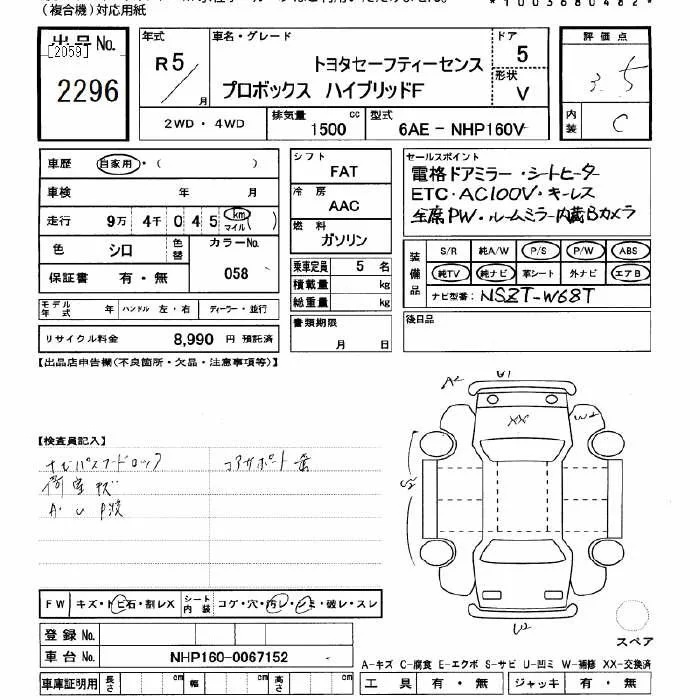 (複合機)対応用紙
*1003680482*
出品No.
[2059]
2296
年式
R5
月
車名・グレード
トヨタセーフティーセンス
プロボックス ハイブリッドF
ドア
5
形状
V
2WD・4WD
排気量
1500
cc
型式
6AE-NHP160V
評価点
3.5
内装
C
車歴
自家用・( )
車検 年 月
走行 9万 4千 0 4 5 km マイル ( )
色 シロ
色替
カラーNo.
058
保証書 有・無
モデル年式 年 ハンドル 左・右 ディーラー・並行
リサイクル料金 8,990 円 預託済
シフト
FAT
冷房
AAC
燃料
ガソリン
乗車定員 5 名
積載量 kg
総重量 kg
書類期限
月 日
セールスポイント
電格ドアミラー・シートヒータ
ETC・AC100V・キーレス
全席PW・ルームミラー内蔵Bカメラ
装備品
S/R 純A/W P/S P/W ABS
純TV 純ナビ 革シート 外ナビ エアB
ナビ型番: NSZT-W68T
後日品
【出品店申告欄(不良箇所・欠品・注意事項等)】
【検査員記入】
ナビパスワードロック
コアサポート
荷室キズ
A・U P波
A2
U1
XX
W2
S2
U2
FW キズ・トビ石・割レX
シート内装 コゲ・穴・汚レ・シミ・破レ・スレ
登録No.
車台No. NHP160-0067152
車庫証明用 長サ cm 幅 cm 高サ cm
スペア
A-キズ C-腐食 E-エクボ S-サビ U-凹ミ W-補修 XX-交換済
工具 有・無 ジャッキ 有・無